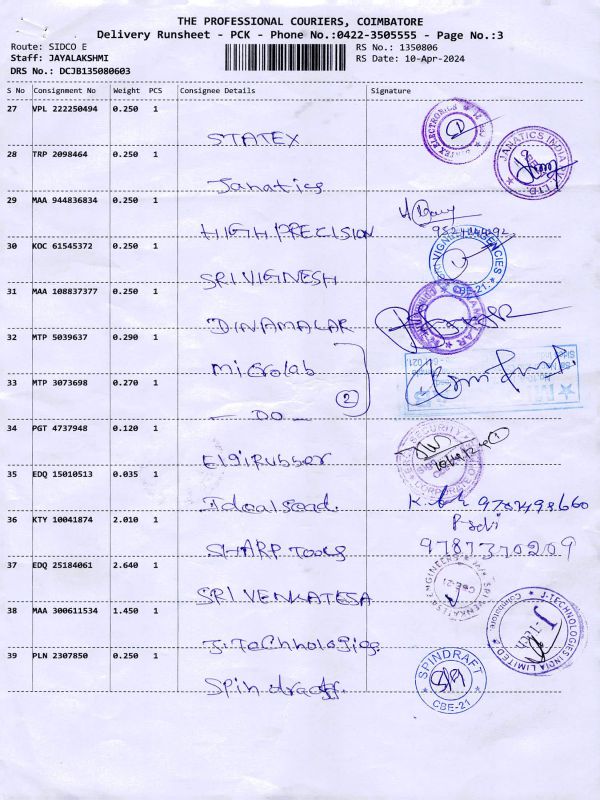 THE PROFESSIONAL COURIERS, COIMBATORE
Delivery Runsheet - PCK - Phone No.:0422-3505555 - Page No.:3
Route: SIDCO E
RS No.: 1350806
Staff: JAYALAKSHMI
RS Date: 10-Apr-2024
DRS No.: DCJB135080603
S No Consignment No Weight PCS Consignee Details Signature
27 VPL 222250494 0.250 1
STATEX
28 TRP 2098464 0.250 1
Janatics
JANATICS INDIA PVT. LTD.
29 MAA 944836834 0.250 1
HIGH PRECISION
30 KOC 61545372 0.250 1
SRI VIGINESH
AGENCIES
CBE-21.
31 MAA 108837377 0.250 1
DINAMALAR
32 MTP 5039637 0.290 1
Microlab
33 MTP 3073698 0.270 1
2
DO
34 PGT 4737948 0.120 1
SECURITY
Elgi Rubber
35 EDQ 15010513 0.035 1
36 KTY 10041874 2.010 1
SHARP Tools
9787370209
37 EDQ 25184061 2.640 1
SRI VENKATESA
SRI VENKATESA ENGINEERS
CBE-21
38 MAA 300611534 1.450 1
J. Technologies
J-TECHNOLOGIES INDIA LIMITED
Coimbatore
39 PLN 2307850 0.250 1
Spindraft.
SPINDRAFT
CBE-21